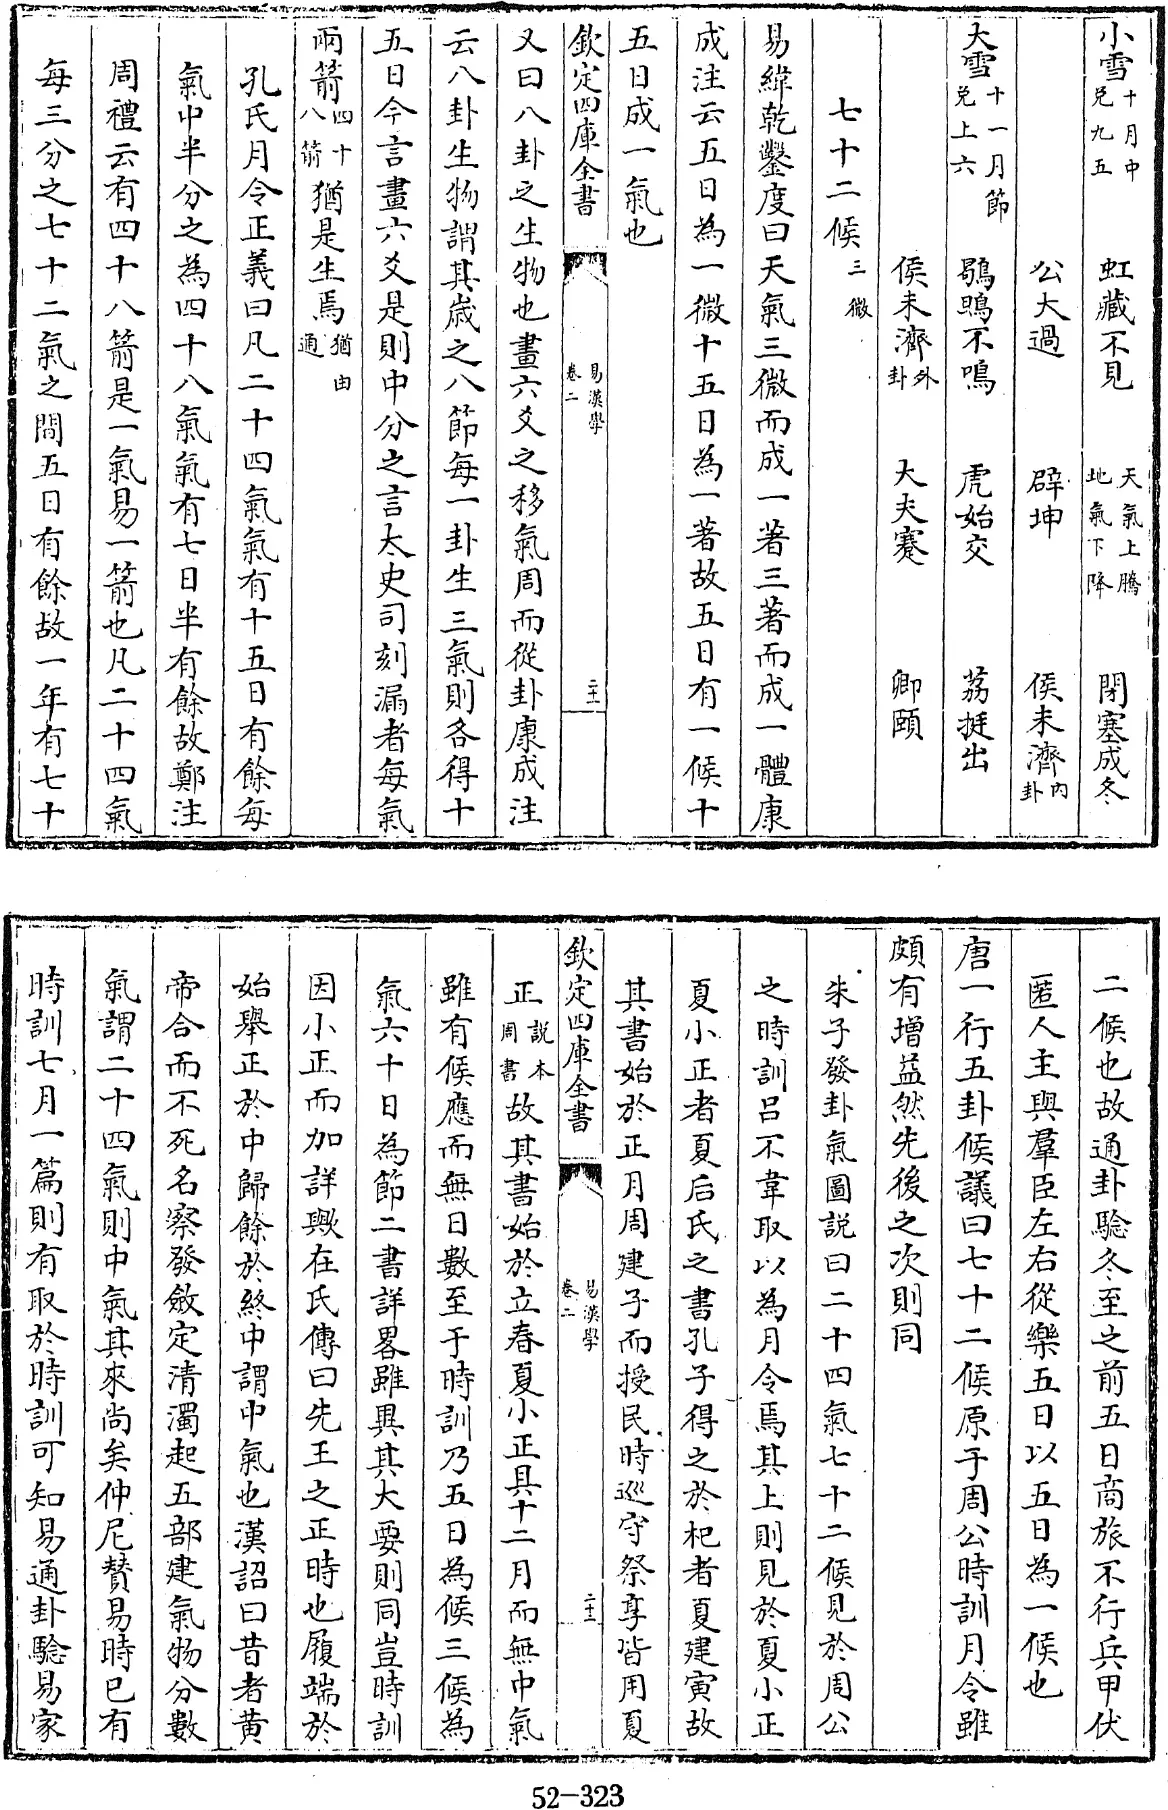 小雪十月中兌九五 虹藏不見 天氣上騰地氣下降 閉塞成冬
公大過 辟坤 侯未濟內卦
大雪十一月節兌上六 鶡鴠不鳴 虎始交 荔挺出
侯未濟外卦 大夫蹇 卿頤
七十二候三微
易緯乾鑿度曰天氣三微而成一著三著而成一體康
成注云五日為一微十五日為一著故五日有一候十
五日成一氣也
欽定四庫全書 易漢學 卷二 二十一
又曰八卦之生物也畫六爻之移氣周而從卦康成注
云八卦生物謂其歲之八節每一卦生三氣則各得十
五日今言畫六爻是則中分之言太史司刻漏者每氣
兩箭四十八箭猶是生焉猶由通
孔氏月令正義曰凡二十四氣氣有十五日有餘每
氣中半分之為四十八氣氣有七日半有餘故鄭注
周禮云有四十八箭是一氣易一箭也凡二十四氣
每三分之七十二氣之間五日有餘故一年有七十
二候也故通卦驗冬至之前五日商旅不行兵甲伏
匿人主與羣臣左右從樂五日以五日為一候也
唐一行五卦候議曰七十二候原于周公時訓月令雖
頗有增益然先後之次則同
朱子發卦氣圖說曰二十四氣七十二候見於周公
之時訓呂不韋取以為月令焉其上則見於夏小正
夏小正者夏后氏之書孔子得之於杞者夏建寅故
其書始於正月周建子而授民時巡守祭享皆用夏
欽定四庫全書 易漢學 卷二 二十二
正說本周書故其書始於立春夏小正具十二月而無中氣
雖有候應而無日數至于時訓乃五日為候三候為
氣六十日為節二書詳畧雖異其大要則同豈時訓
因小正而加詳歟在氏傳曰先王之正時也履端於
始舉正於中歸餘於終中謂中氣也漢詔曰昔者黃
帝合而不死名察發斂定清濁起五部建氣物分數
氣謂二十四氣則中氣其來尚矣仲尼贊易時已有
時訓七月一篇則有取於時訓可知易通卦驗易家
52—323